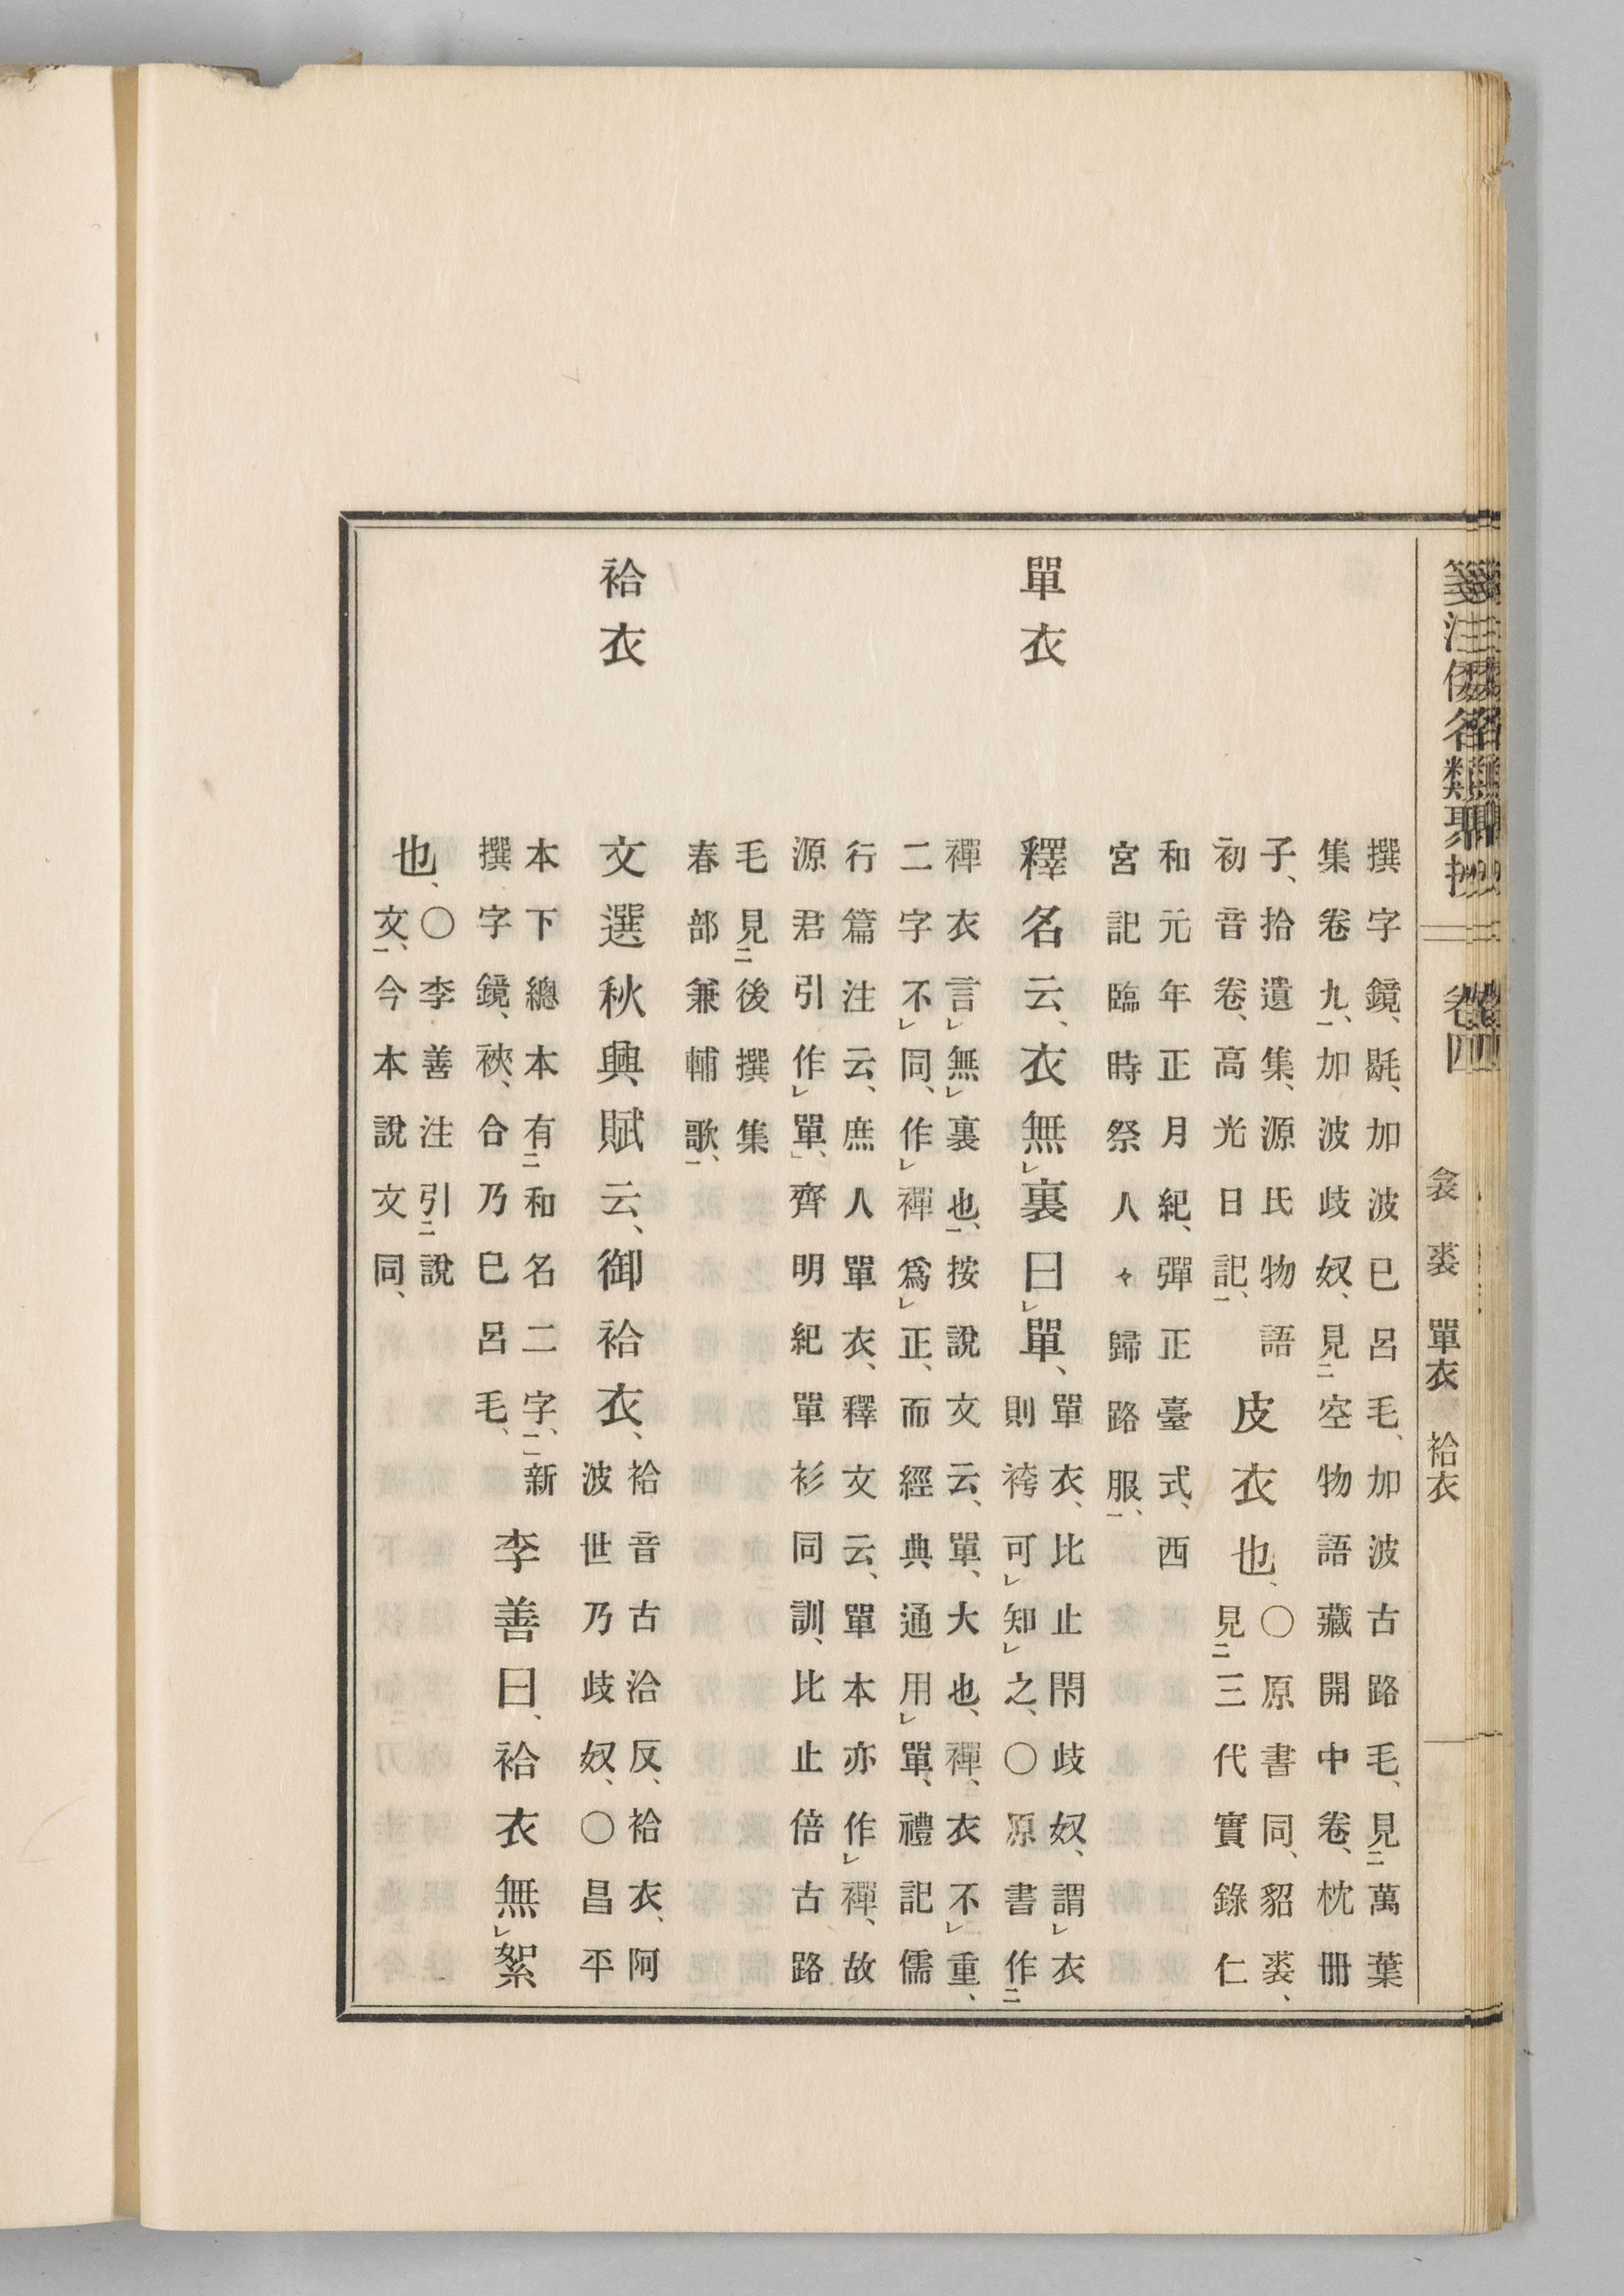 箋注倭名類聚抄 卷四 衾 裘 單衣 袷衣
撰字鏡、毾、加波巳呂毛、加波古路毛、見二萬葉
集卷九、一加波歧奴、見二空物語藏開中卷、枕册
子、拾遺集、源氏物語
初音卷、高光日記、一
皮衣也、
〇原書同、貂裘、
見二三代實錄仁
和元年正月紀、彈正臺式、西
宮記臨時祭人々歸路服、一
單衣
釋名云、衣無レ裏曰レ單、
單衣、比止閇歧奴、謂レ衣
則袴可レ知レ之、〇原書作二
襌衣言レ無レ裏也、一按說文云、單、大也、襌、衣不レ重、
二字不レ同、作レ襌爲レ正、而經典通用レ單、禮記儒
行篇注云、庶人單衣、釋文云、單本亦作レ襌、故
源君引作レ單、齊明紀單衫同訓、比止倍古路
毛見二後撰集
春部兼輔歌、一
袷衣
文選秋興賦云、御袷衣、
袷音古洽反、袷衣、阿
波世乃歧奴、〇昌平
本下總本有二和名二字、一新
撰字鏡、裌、合乃巳呂毛、
李善曰、袷衣無レ絮
也、
〇李善注引二說
文、一今本說文同、